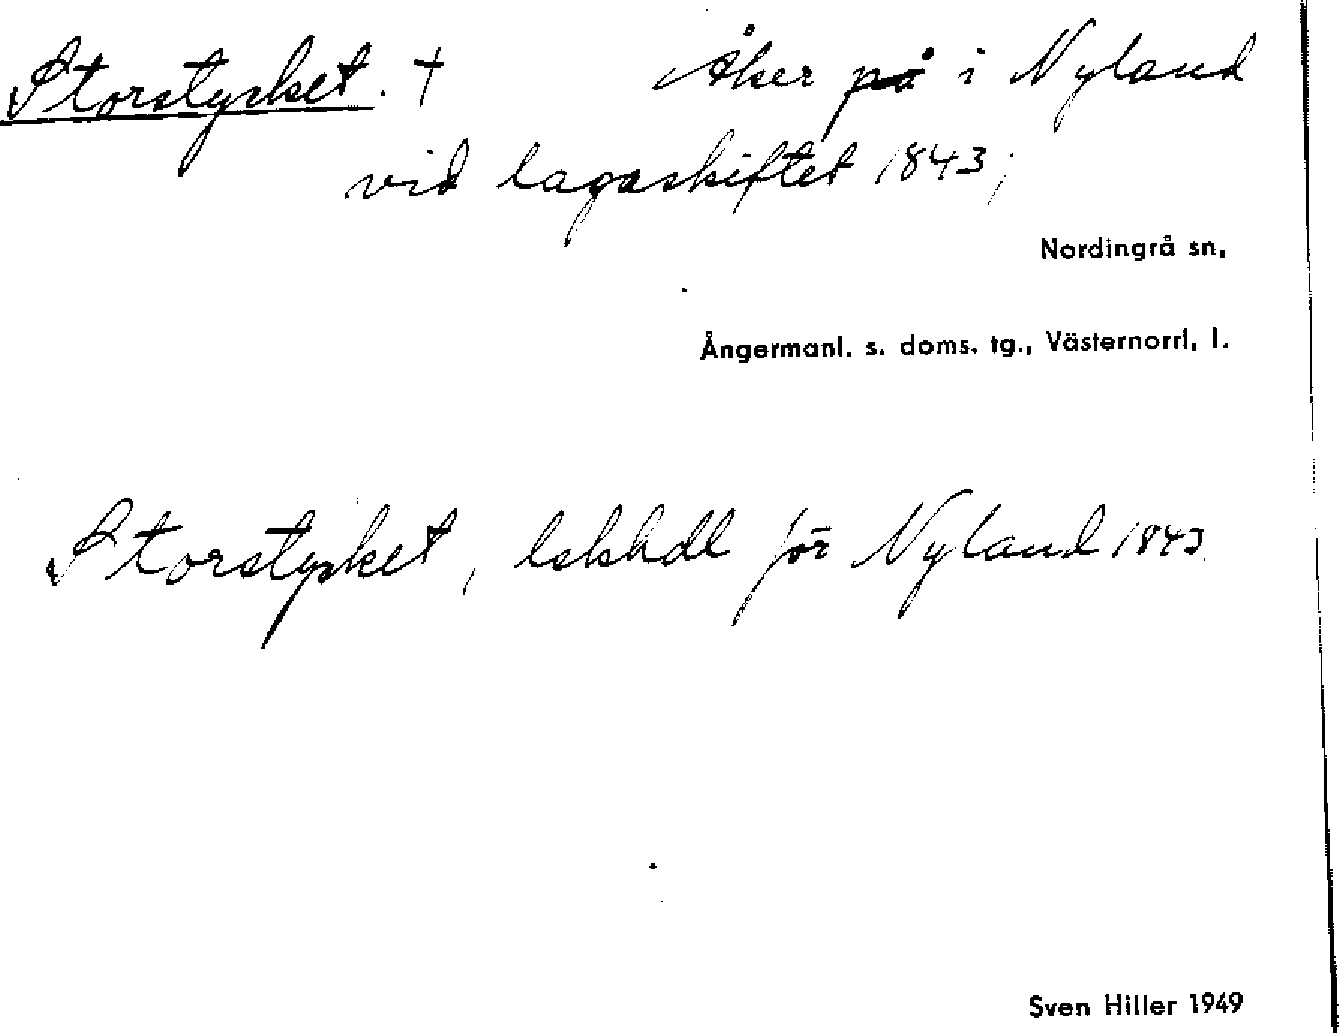 Storstycket. † Åker på i Nyland
vid lagaskiftet 1843;
Nordingrå sn,
Ångermanl. s. doms. tg., Västernorrl, l.
Storstycket, lskhdl för Nyland 1843
Sven Hiller 1949